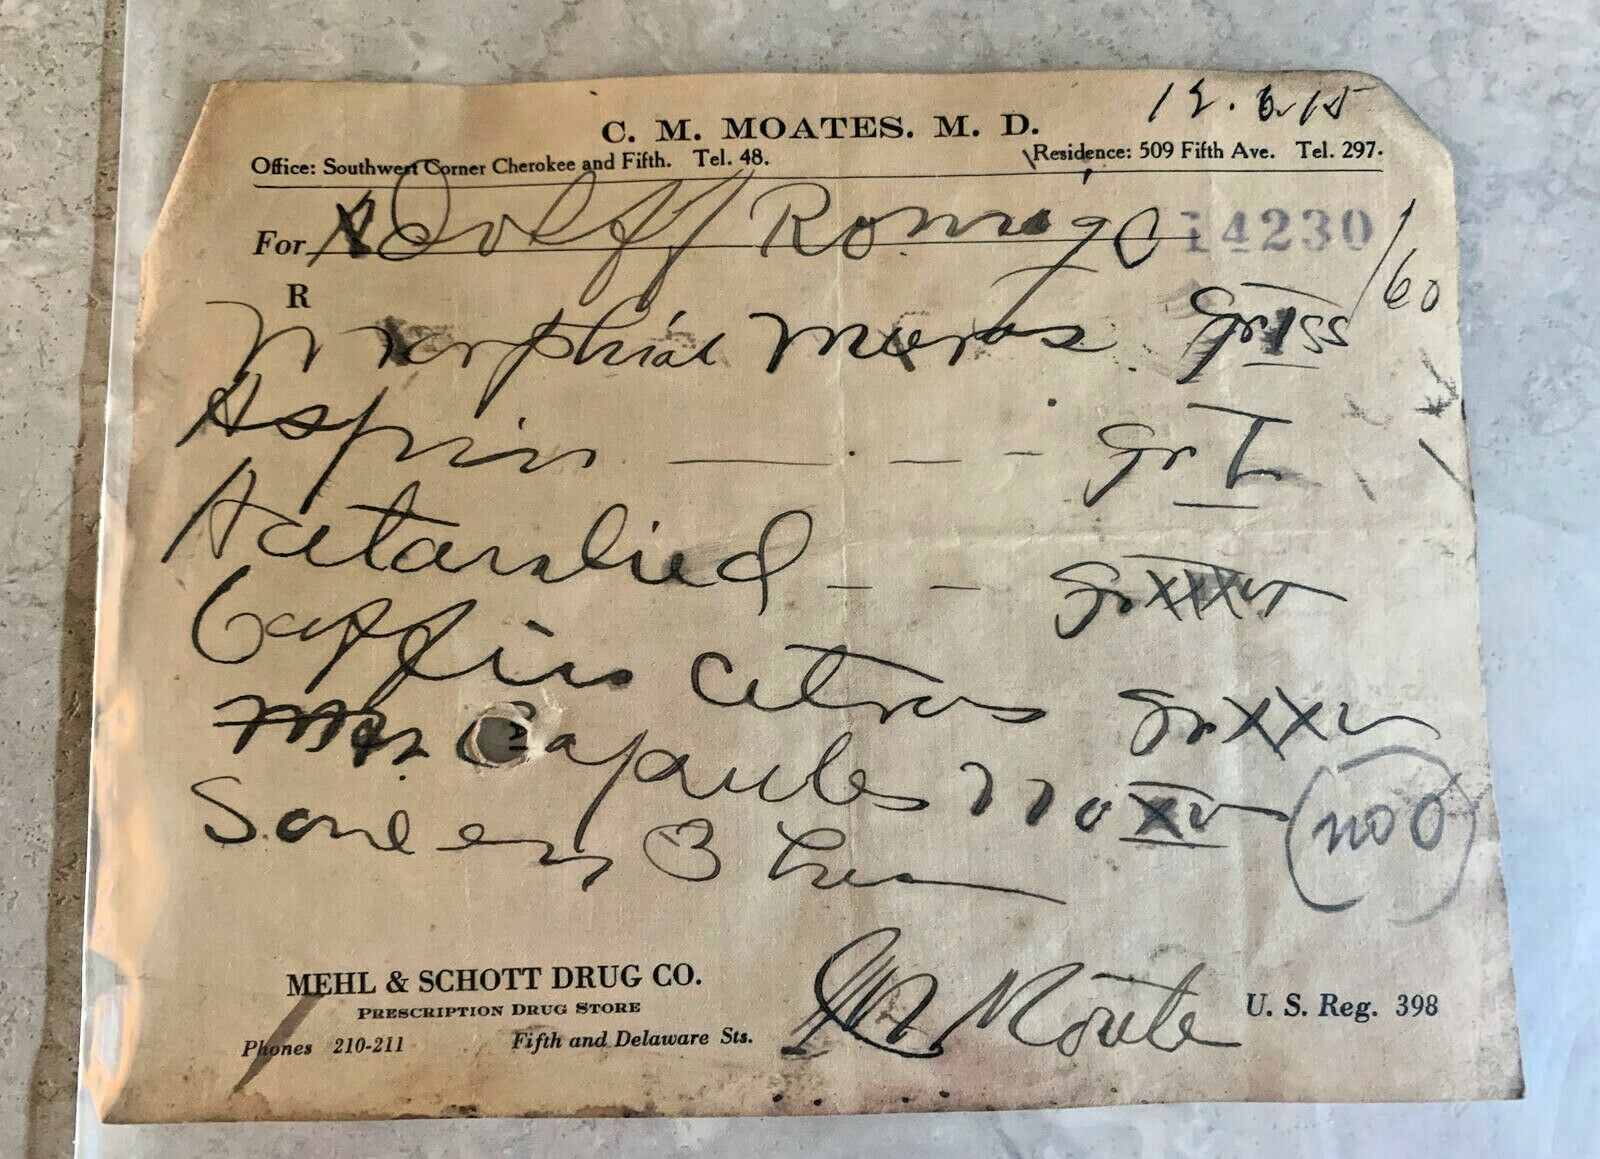 12.6.15
C. M. MOATES. M. D.
Office: Southwest Corner Cherokee and Fifth. Tel. 48. Residence: 509 Fifth Ave. Tel. 297.
For Adolff 14230
R /60
Morphiat Muras. Gr Iss
Aspirin — - - Gr L
Acetanlied - - Gr xxxv
Caffins citras Gr xxv
Capsules no xv (no 0)
one every 3 hrs
Moate U. S. Reg. 398
MEHL & SCHOTT DRUG CO.
PRESCRIPTION DRUG STORE
Phones 210-211 Fifth and Delaware Sts.